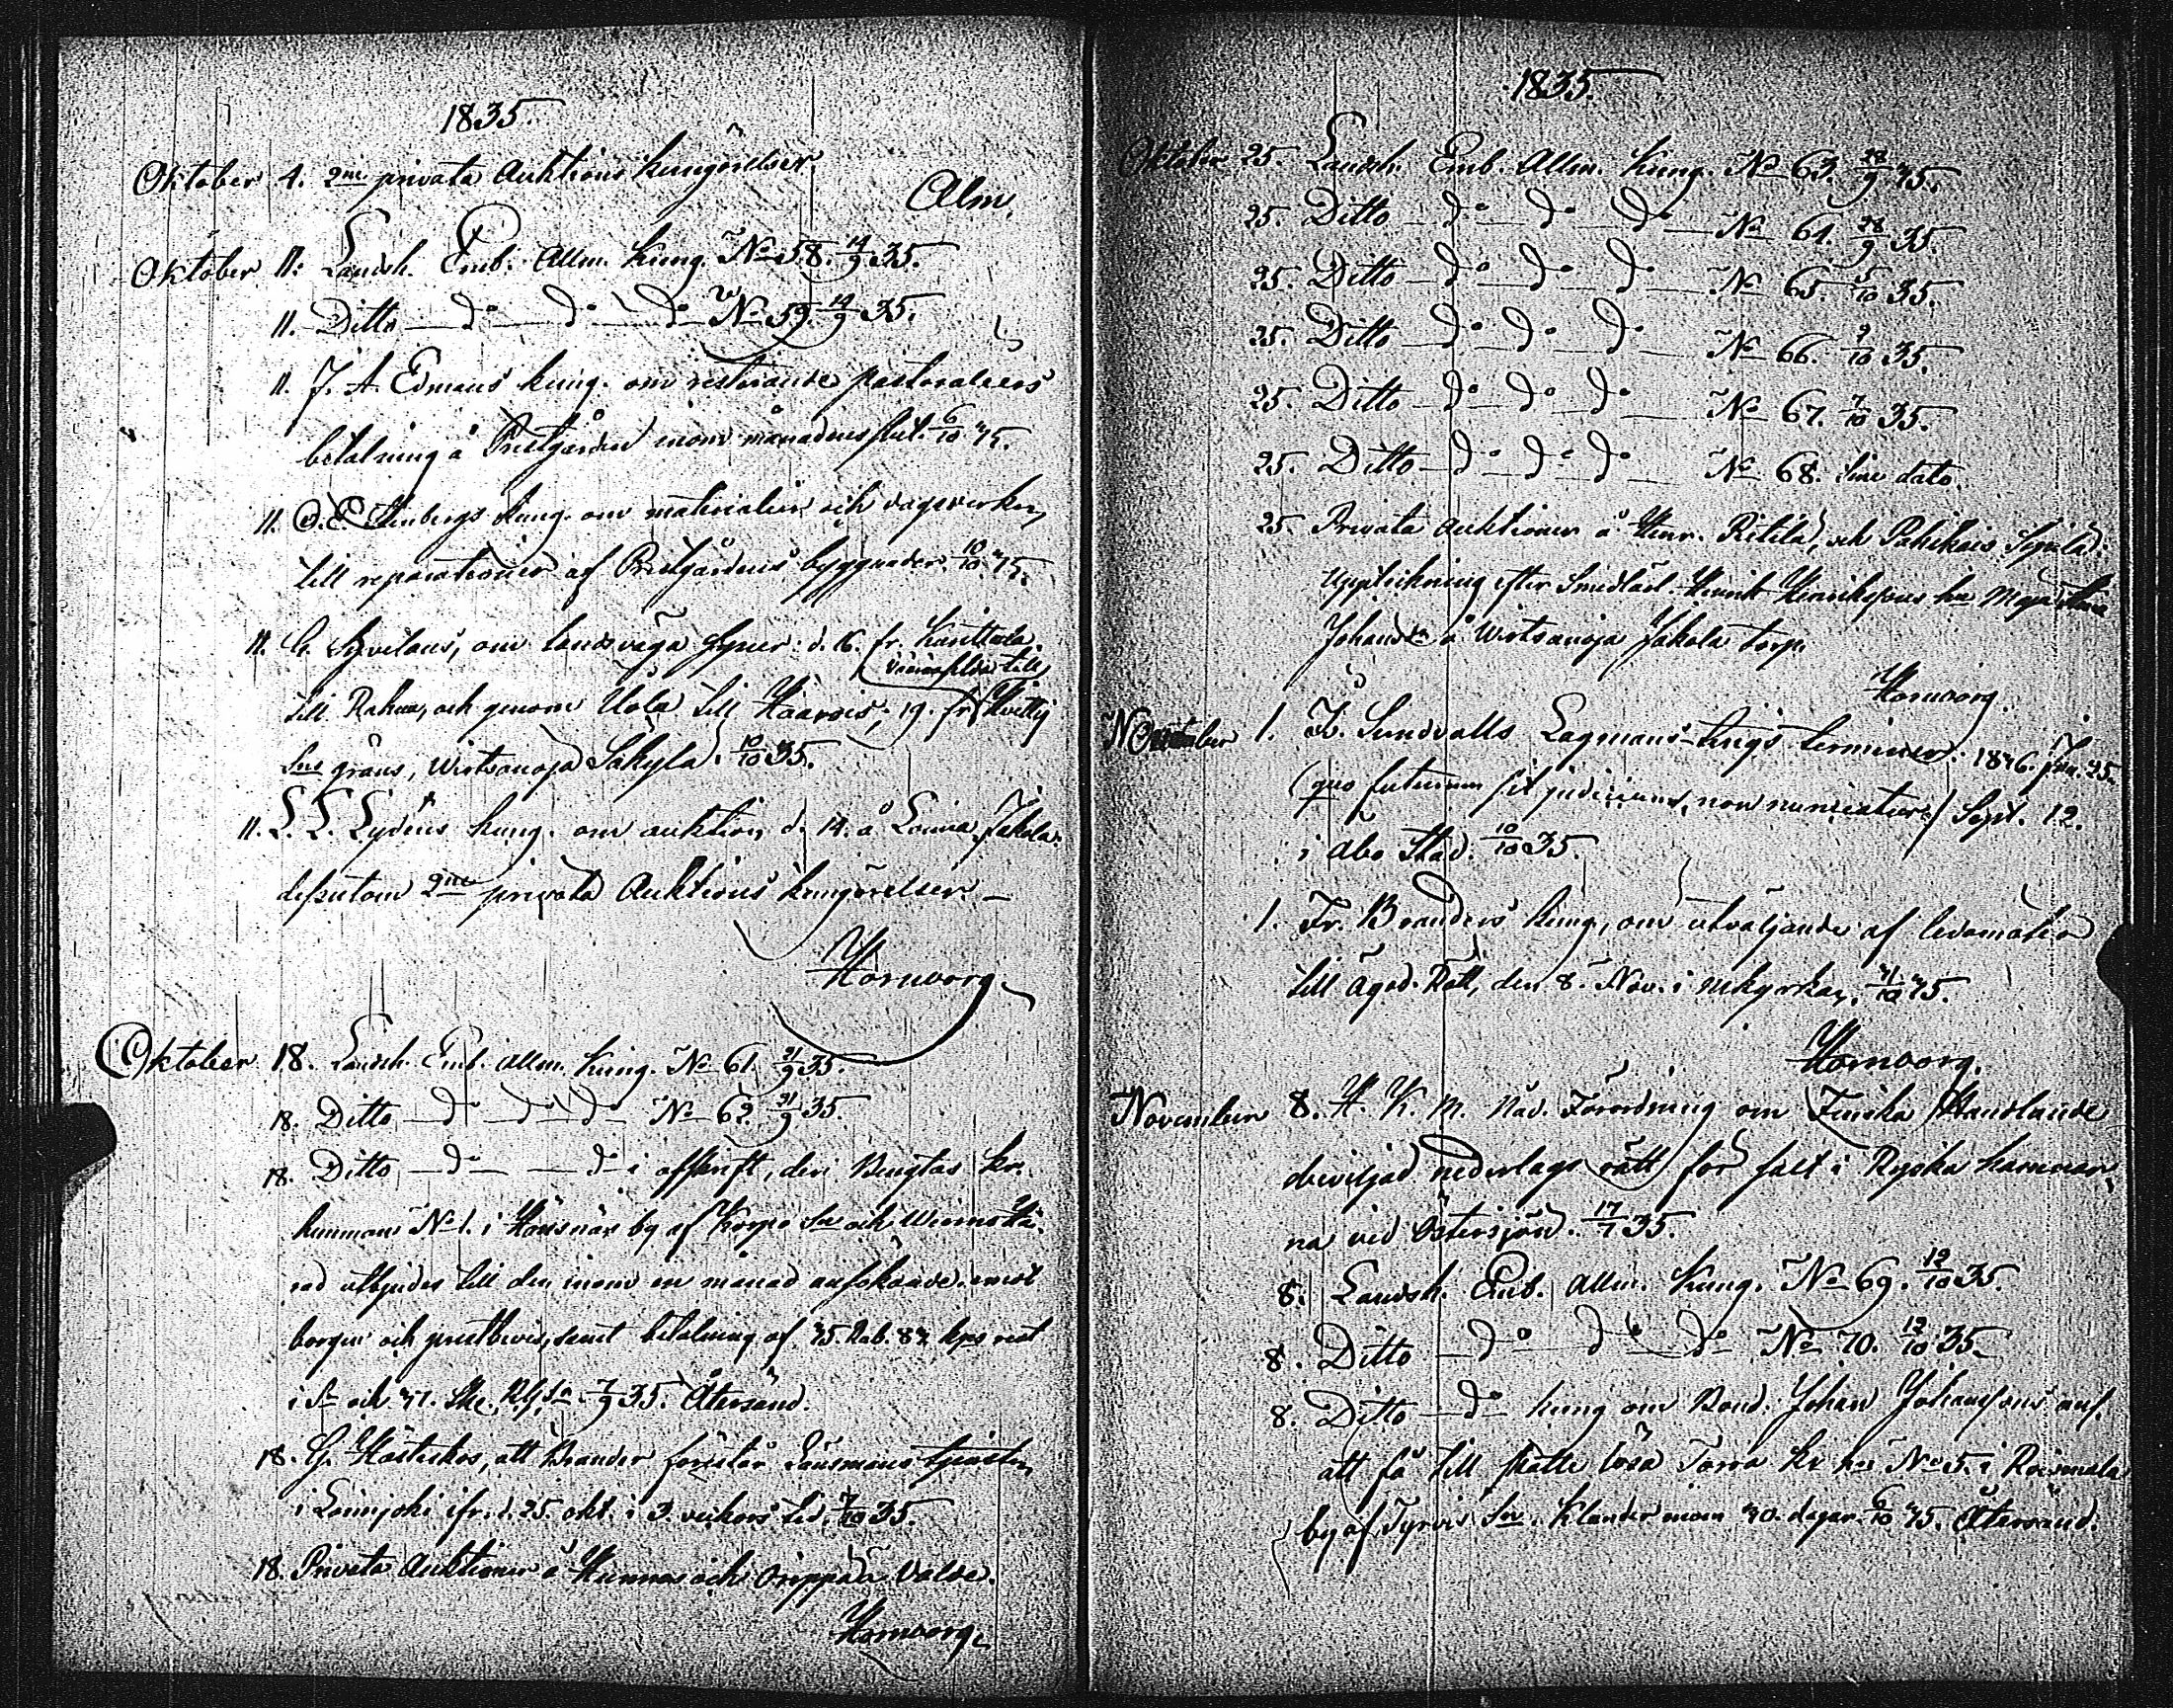 1835.
Oktober 4. 2ne privata Auktions kungörelser.
Alm.
Oktober 11. Landsh. Emb. Allm. Kung. No 58. 14/9 35.
11. Ditto do do do No 59. 14/9 35.
11. J. A. Edmans kung. om resterande pastoraliers
betalning å Prestgården inom månadens slut. 6/10 35.
11. Stenbergs kung. om materialier och dagsverken
till reparationer af Prestgårdens byggnader. 10/10 35.
11. om landsväga syner: d. 16. fr.
till
till och genom Uola till 19. fr.
gräns, Wirtsanoja Säkylä. 10/10 35.
11. L. L. Lydéns kung. om auktion d. 14. å Jakola.
dessutom 2ne privata Auktions kungörelser.
Hornborg
Oktober 18. Landsh. Emb. Allm. Kung. No 61. 21/9 35.
18. Ditto do do do No 62. 21/9 35.
18. Ditto do do i afskrift, deri
No 1. i by af Korpo Sn och
utbjudes till den inom en månad ansökande, emot
borgen och prestbevis, samt betalning af 75. Rub. 87
i Sr och 7/9 35. Återsänd.
18. G. att Brander förestår Länsmans tjensten
i Loimjoki ifr. d. 25. okt. i 3. veckors tid. 7/10 35.
18. Privata Auktioner å och Oripää Valde.
Hornborg
1835.
Oktober 25. Landsh. Emb. Allm. Kung. No 63. 28/9 35.
25. Ditto do do do No 64. 28/9 35.
25. Ditto do do do No 65. 5/10 35.
25. Ditto do do do No 66. 9/10 35.
25. Ditto do do do No 67. 7/10 35.
25. Ditto do do do No 68. sine dato.
25. Privata auktioner å Ritilä, och
Uppteckning efter Henrik Henrikssons
Johansdr å Wirtsanoja Jakola torp.
Hornborg.
November 1. Sundvalls Lagmans-tings terminer: 1836. Jan. 25.
(quo futurum sit judicium, non nunciatur) Sept. 12.
i Åbo Stad. 10/10 35.
1. Fr. Branders kung, om utväljande af ledamöter
till Ägod. Rätt, den 8. Nov. i
Hornborg.
November 8. H. K. M. Nåd. Förordning om Finska Handlande
beviljad nederlags rätt för salt i Ryska hamnar-
na vid Östersjön. 17/7 35.
8. Landsh. Emb. Allm. Kung. No 69. 12/10 35.
8. Ditto do do do No 70. 12/10 35.
8. Ditto do kung om Bond. Johan Johanssons ans.
att få till skatte lösa No 5. i
by af Tyrvis Sn. Klander inom 30. dagar. 6/10 35. Återsänd.